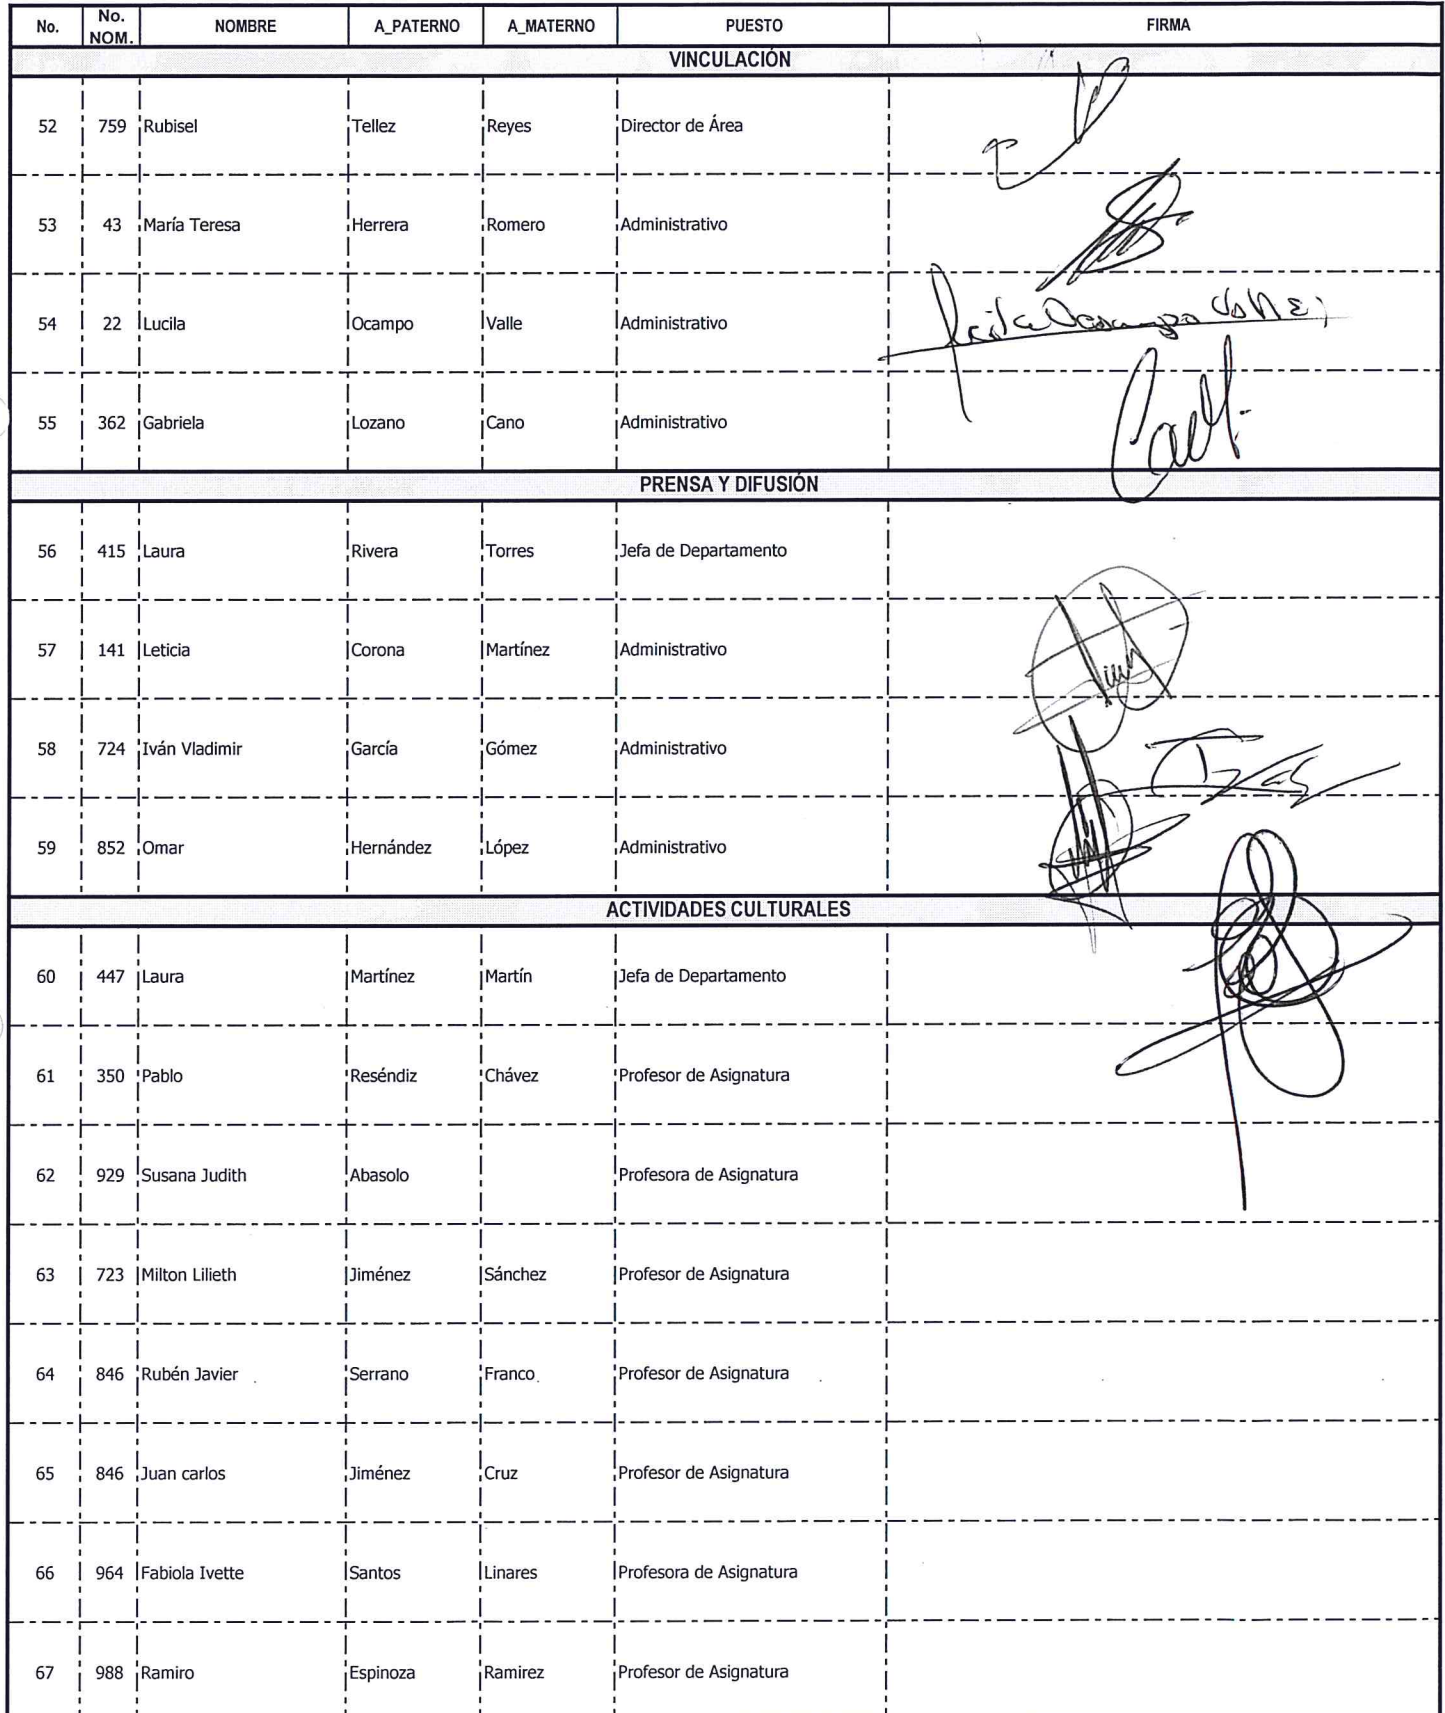 No. No. NOM. NOMBRE A_PATERNO A_MATERNO PUESTO FIRMA
VINCULACIÓN
52 759 Rubisel Tellez Reyes Director de Área
53 43 María Teresa Herrera Romero Administrativo
54 22 Lucila Ocampo Valle Administrativo
55 362 Gabriela Lozano Cano Administrativo
PRENSA Y DIFUSIÓN
56 415 Laura Rivera Torres Jefa de Departamento
57 141 Leticia Corona Martínez Administrativo
58 724 Iván Vladimir García Gómez Administrativo
59 852 Omar Hernández López Administrativo
ACTIVIDADES CULTURALES
60 447 Laura Martínez Martín Jefa de Departamento
61 350 Pablo Reséndiz Chávez Profesor de Asignatura
62 929 Susana Judith Abasolo Profesora de Asignatura
63 723 Milton Lilieth Jiménez Sánchez Profesor de Asignatura
64 846 Rubén Javier Serrano Franco Profesor de Asignatura
65 846 Juan carlos Jiménez Cruz Profesor de Asignatura
66 964 Fabiola Ivette Santos Linares Profesora de Asignatura
67 988 Ramiro Espinoza Ramirez Profesor de Asignatura